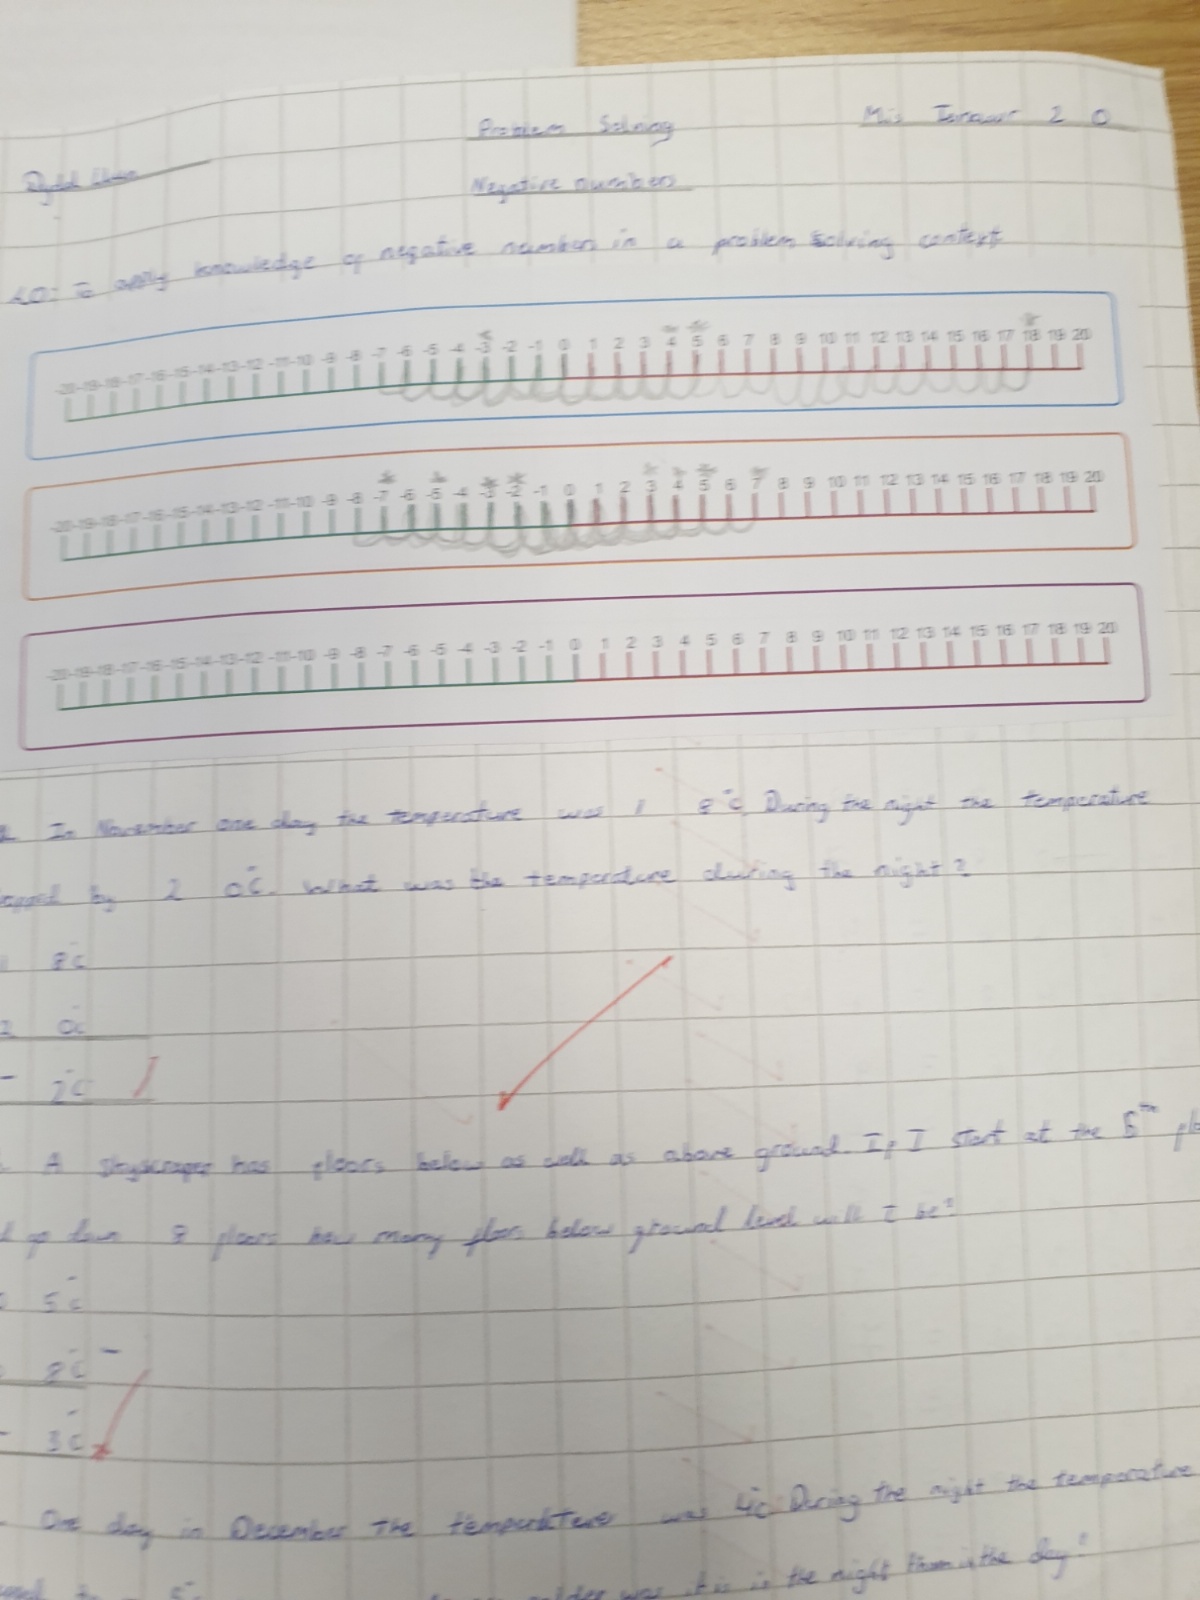 Problem Solving
2 0
Negative numbers
LO: To apply knowledge of negative number in a problem solving context
-20 -19 -18 -17 -16 -15 -14 -13 -12 -11 -10 -9 -8 -7 -6 -5 -4 -3 -2 -1 0 1 2 3 4 5 6 7 8 9 10 11 12 13 14 15 16 17 18 19 20
-20 -19 -18 -17 -16 -15 -14 -13 -12 -11 -10 -9 -8 -7 -6 -5 -4 -3 -2 -1 0 1 2 3 4 5 6 7 8 9 10 11 12 13 14 15 16 17 18 19 20
-20 -19 -18 -17 -16 -15 -14 -13 -12 -11 -10 -9 -8 -7 -6 -5 -4 -3 -2 -1 0 1 2 3 4 5 6 7 8 9 10 11 12 13 14 15 16 17 18 19 20
In November one day the temperature was 1 8°C. During the night the temperature
by 2 0°C. What was the temperature during the night?
1 8°C
2 0°C
- 2°C
A skyscraper has floors below as well as above ground. If I start at the 5th
go down 8 floors how many floors below ground level will I be?
5°C
8°C -
- 3°C
One day in December the temperature was 4°C During the night the temperature
5° was it is in the night than in the day?